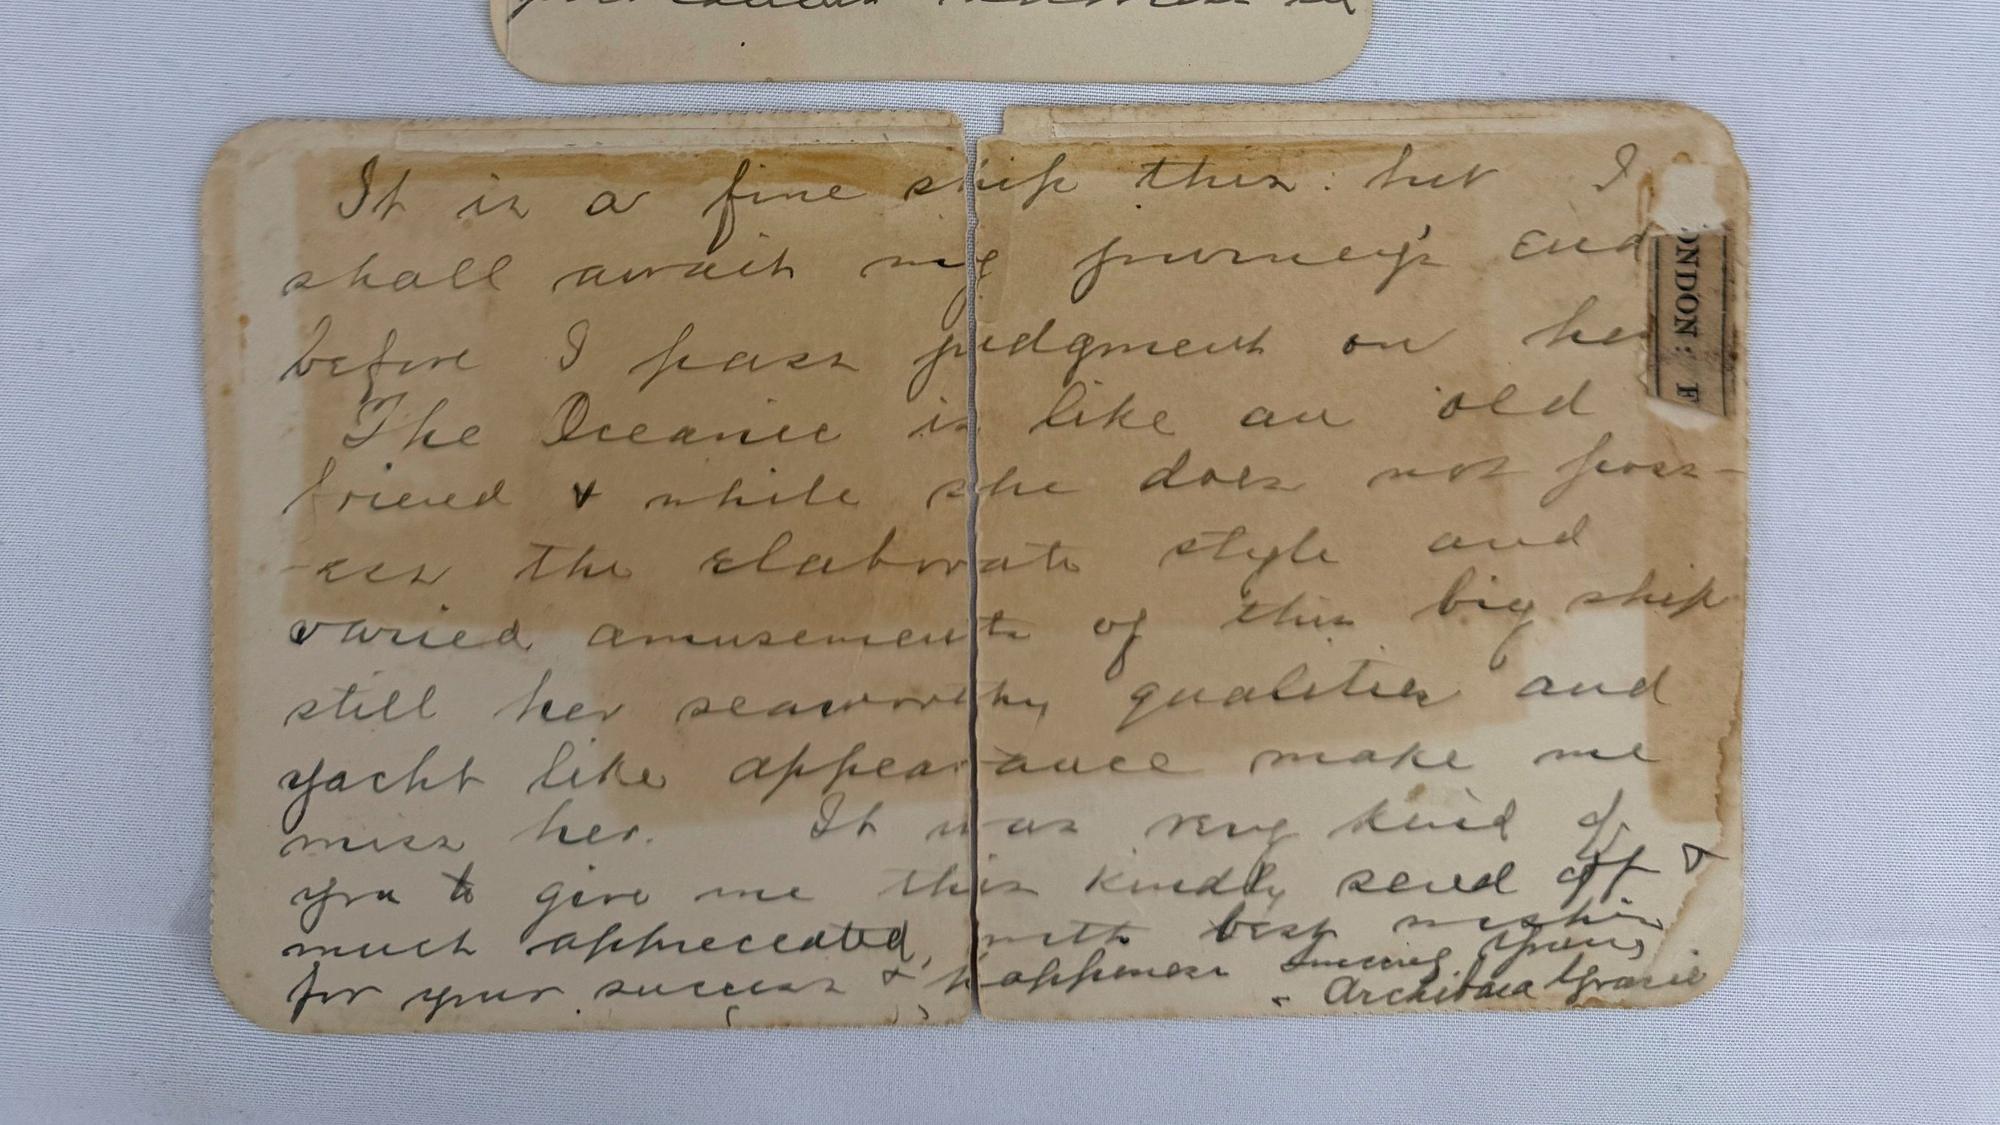 It is a fine ship this: but I
shall await my journey's end
before I pass judgment on her
The Oceanic is like an old
friend & while she does not poss-
-ess the elaborate style and
varied amusements of this big ship
still her seaworthy qualities and
yacht like appearance make me
miss her. It was very kind of
you to give me this kindly send off
much appreciated, with best wishes
for your success & happiness Sincerely Yours,
Archibald Gracie
ONDON: F